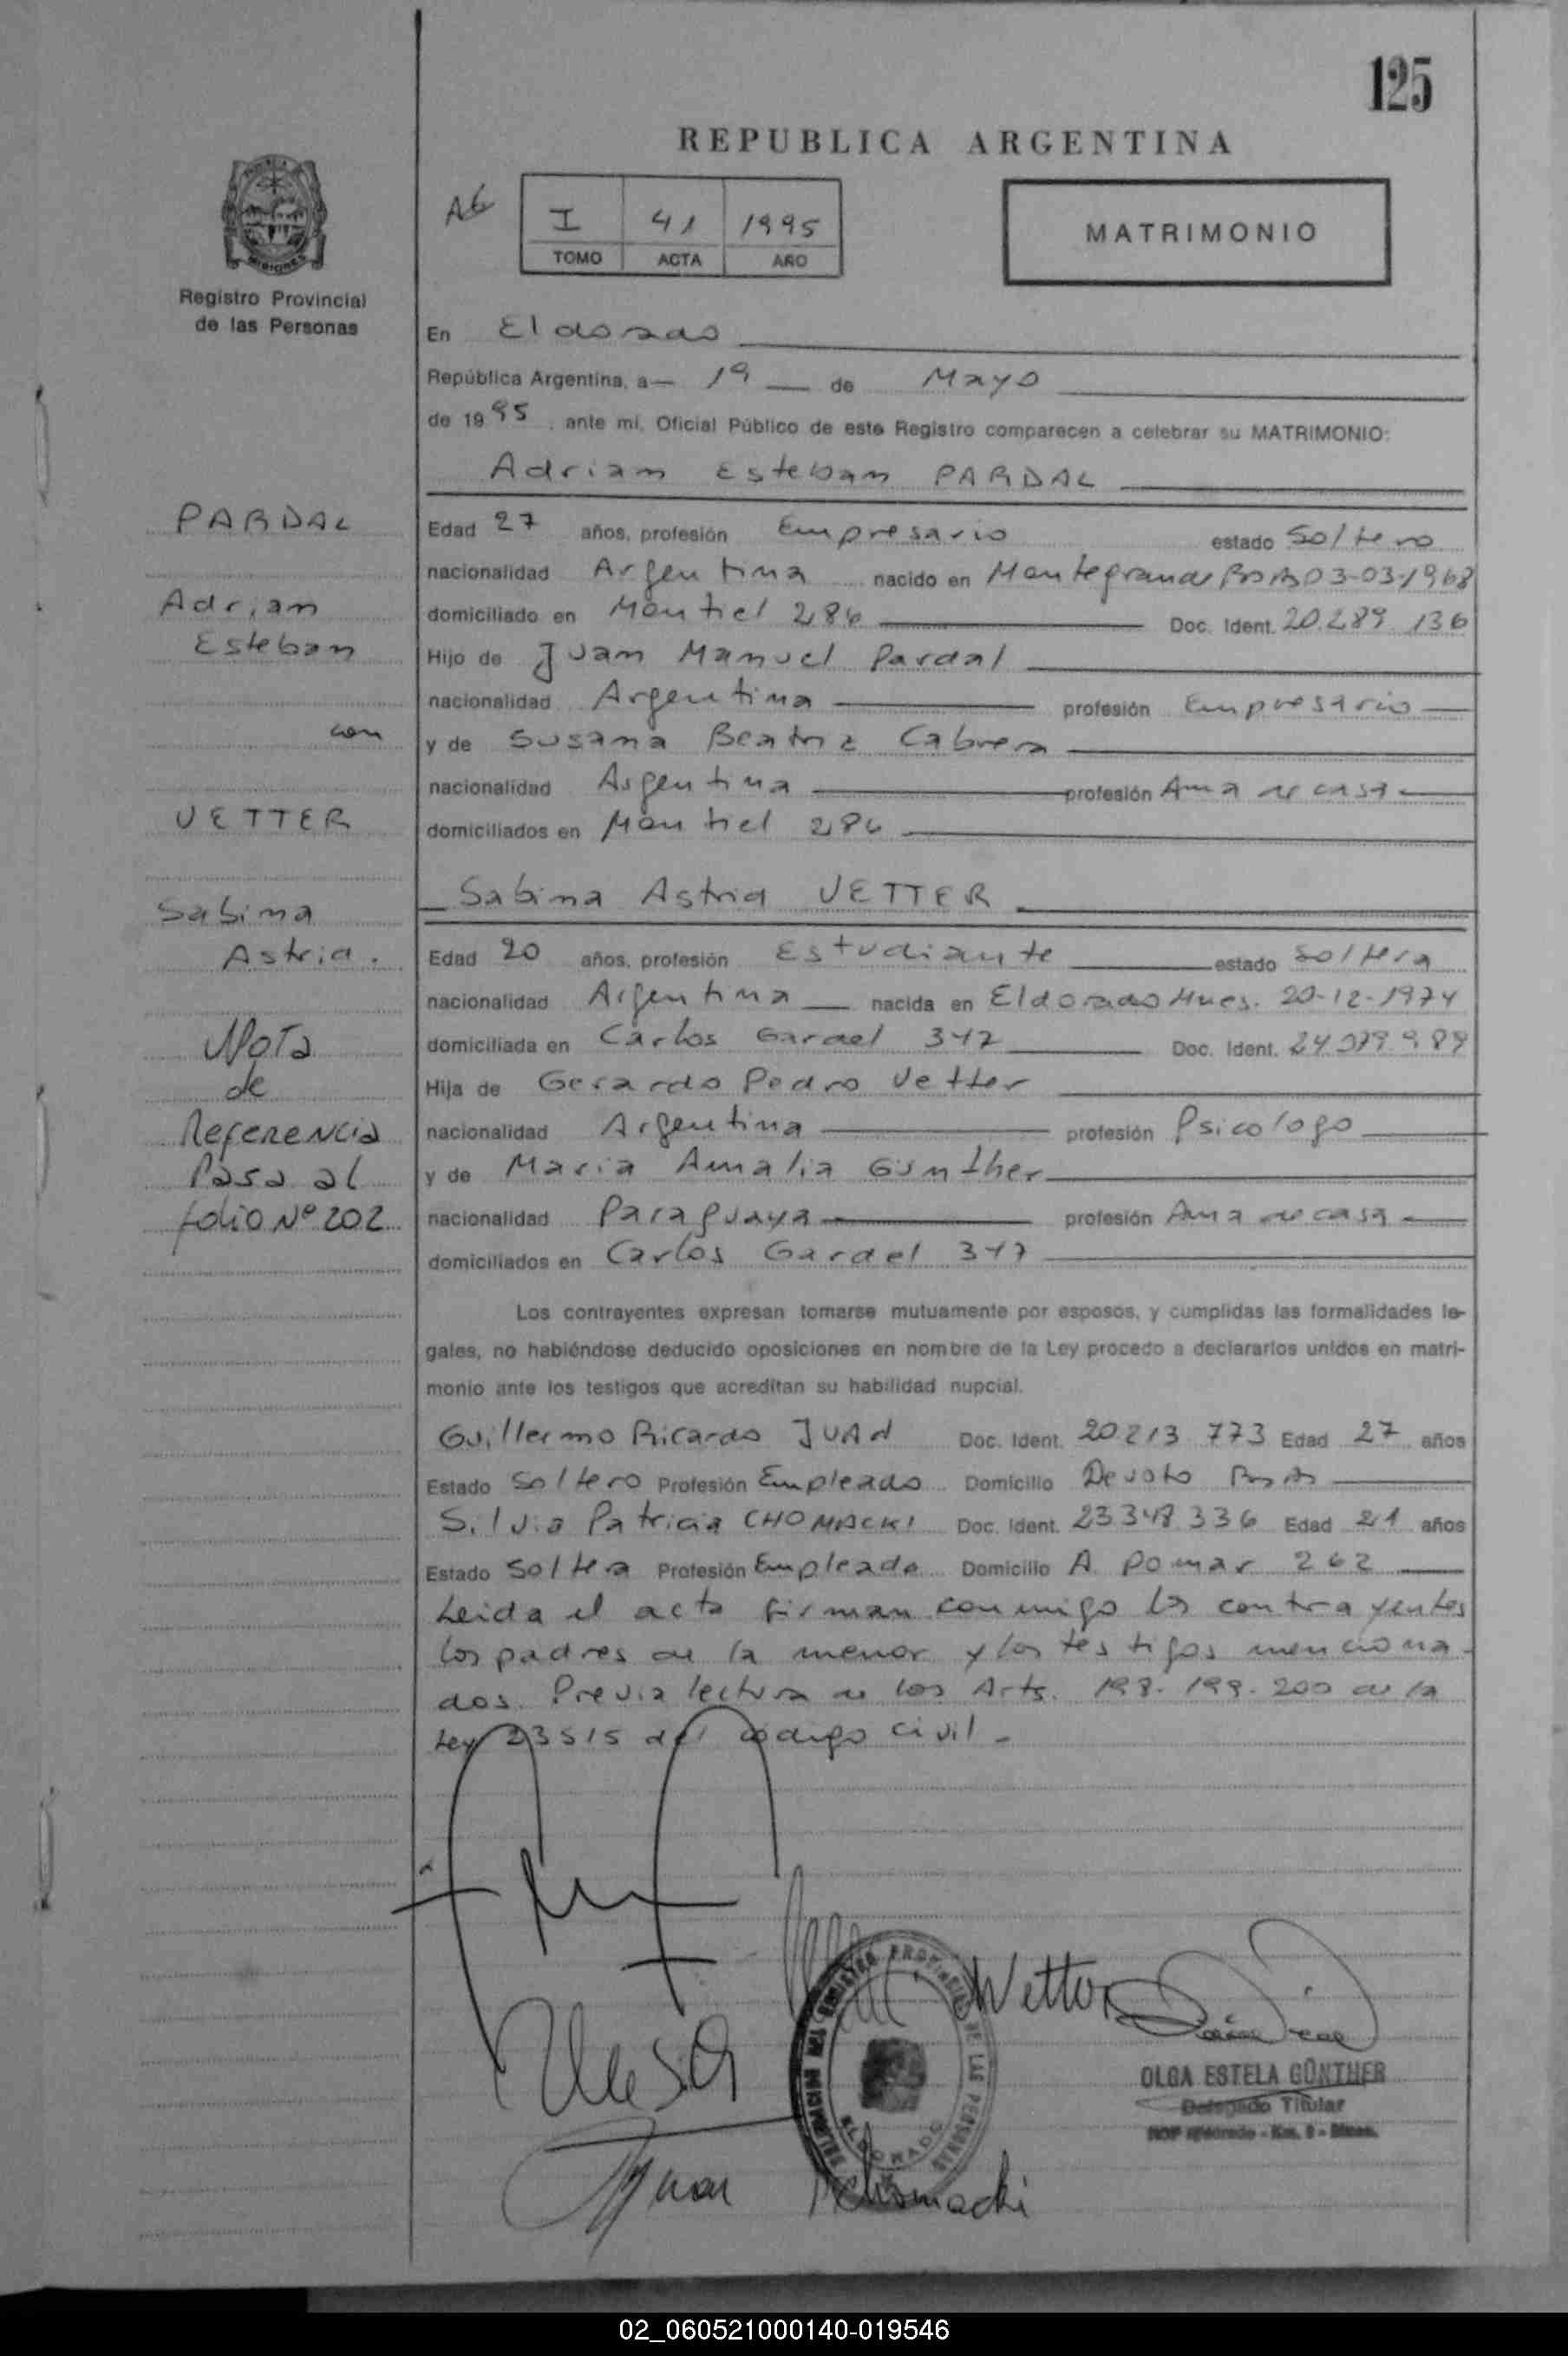 125
REPUBLICA ARGENTINA
MISIONES
Registro Provincial
de las Personas
AG
I 41 1995
TOMO ACTA AÑO
MATRIMONIO
En Eldorado
República Argentina, a 19 de Mayo
de 1995, ante mí, Oficial Público de este Registro comparecen a celebrar su MATRIMONIO:
Adrian Esteban PARDAL
Edad 27 años, profesión Empresario estado Soltero
nacionalidad Argentina nacido en Montegrande Bs As 03-03-1968
domiciliado en Montiel 286 Doc. Ident. 20.289.136
Hijo de Juan Manuel Pardal
nacionalidad Argentina profesión Empresario
y de Susana Beatriz Cabrera
nacionalidad Argentina profesión Ama de casa
domiciliados en Montiel 286
Sabina Astrid VETTER
Edad 20 años, profesión Estudiante estado Soltera
nacionalidad Argentina nacida en Eldorado Mnes. 20-12-1974
domiciliada en Carlos Gardel 347 Doc. Ident. 24.079.989
Hija de Gerardo Pedro Vetter
nacionalidad Argentina profesión Psicologo
y de Maria Amalia Günther
nacionalidad Paraguaya profesión Ama de casa
domiciliados en Carlos Gardel 347
Los contrayentes expresan tomarse mutuamente por esposos, y cumplidas las formalidades le-
gales, no habiéndose deducido oposiciones en nombre de la Ley procedo a declararlos unidos en matri-
monio ante los testigos que acreditan su habilidad nupcial.
Guillermo Ricardo JUAN Doc. Ident. 20.213.773 Edad 27 años
Estado Soltero Profesión Empleado Domicilio Devoto Bs As
Silvia Patricia CHOMACKI Doc. Ident. 23.348.336 Edad 21 años
Estado Soltera Profesión Empleada Domicilio A. Pomar 262
Leida el acta firman conmigo los contrayentes
los padres de la menor y los testigos menciona-
dos. Previa lectura de los Arts. 198-199-200 de la
Ley 23515 del codigo civil-
PARDAL
Adrian
Esteban
con
VETTER
Sabina
Astrid.
Nota
de
Referencia
Pasa al
folio Nº 202
Vetter
REGISTRO PROVINCIAL DE LAS PERSONAS
ELDORADO
OLGA ESTELA GÜNTHER
Delegado Titular
Juan Chomacki
02_060521000140-019546